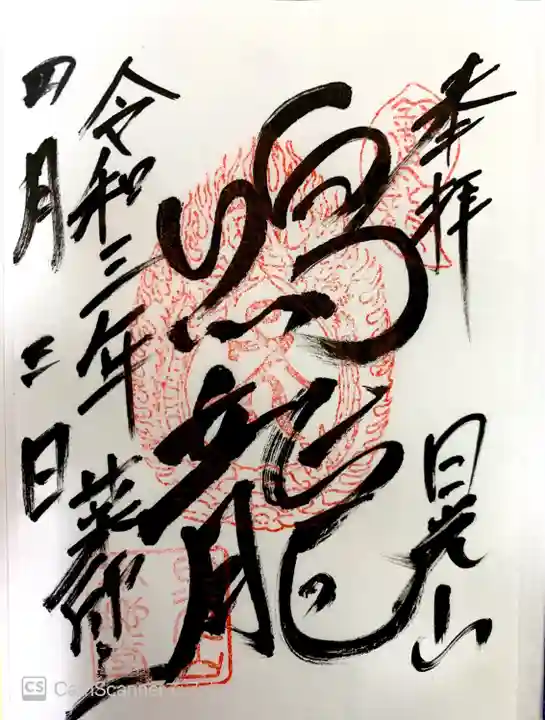 奉拝
日光山
鳴龍
令和三年
四月二日
薬師堂
CS CamScanner